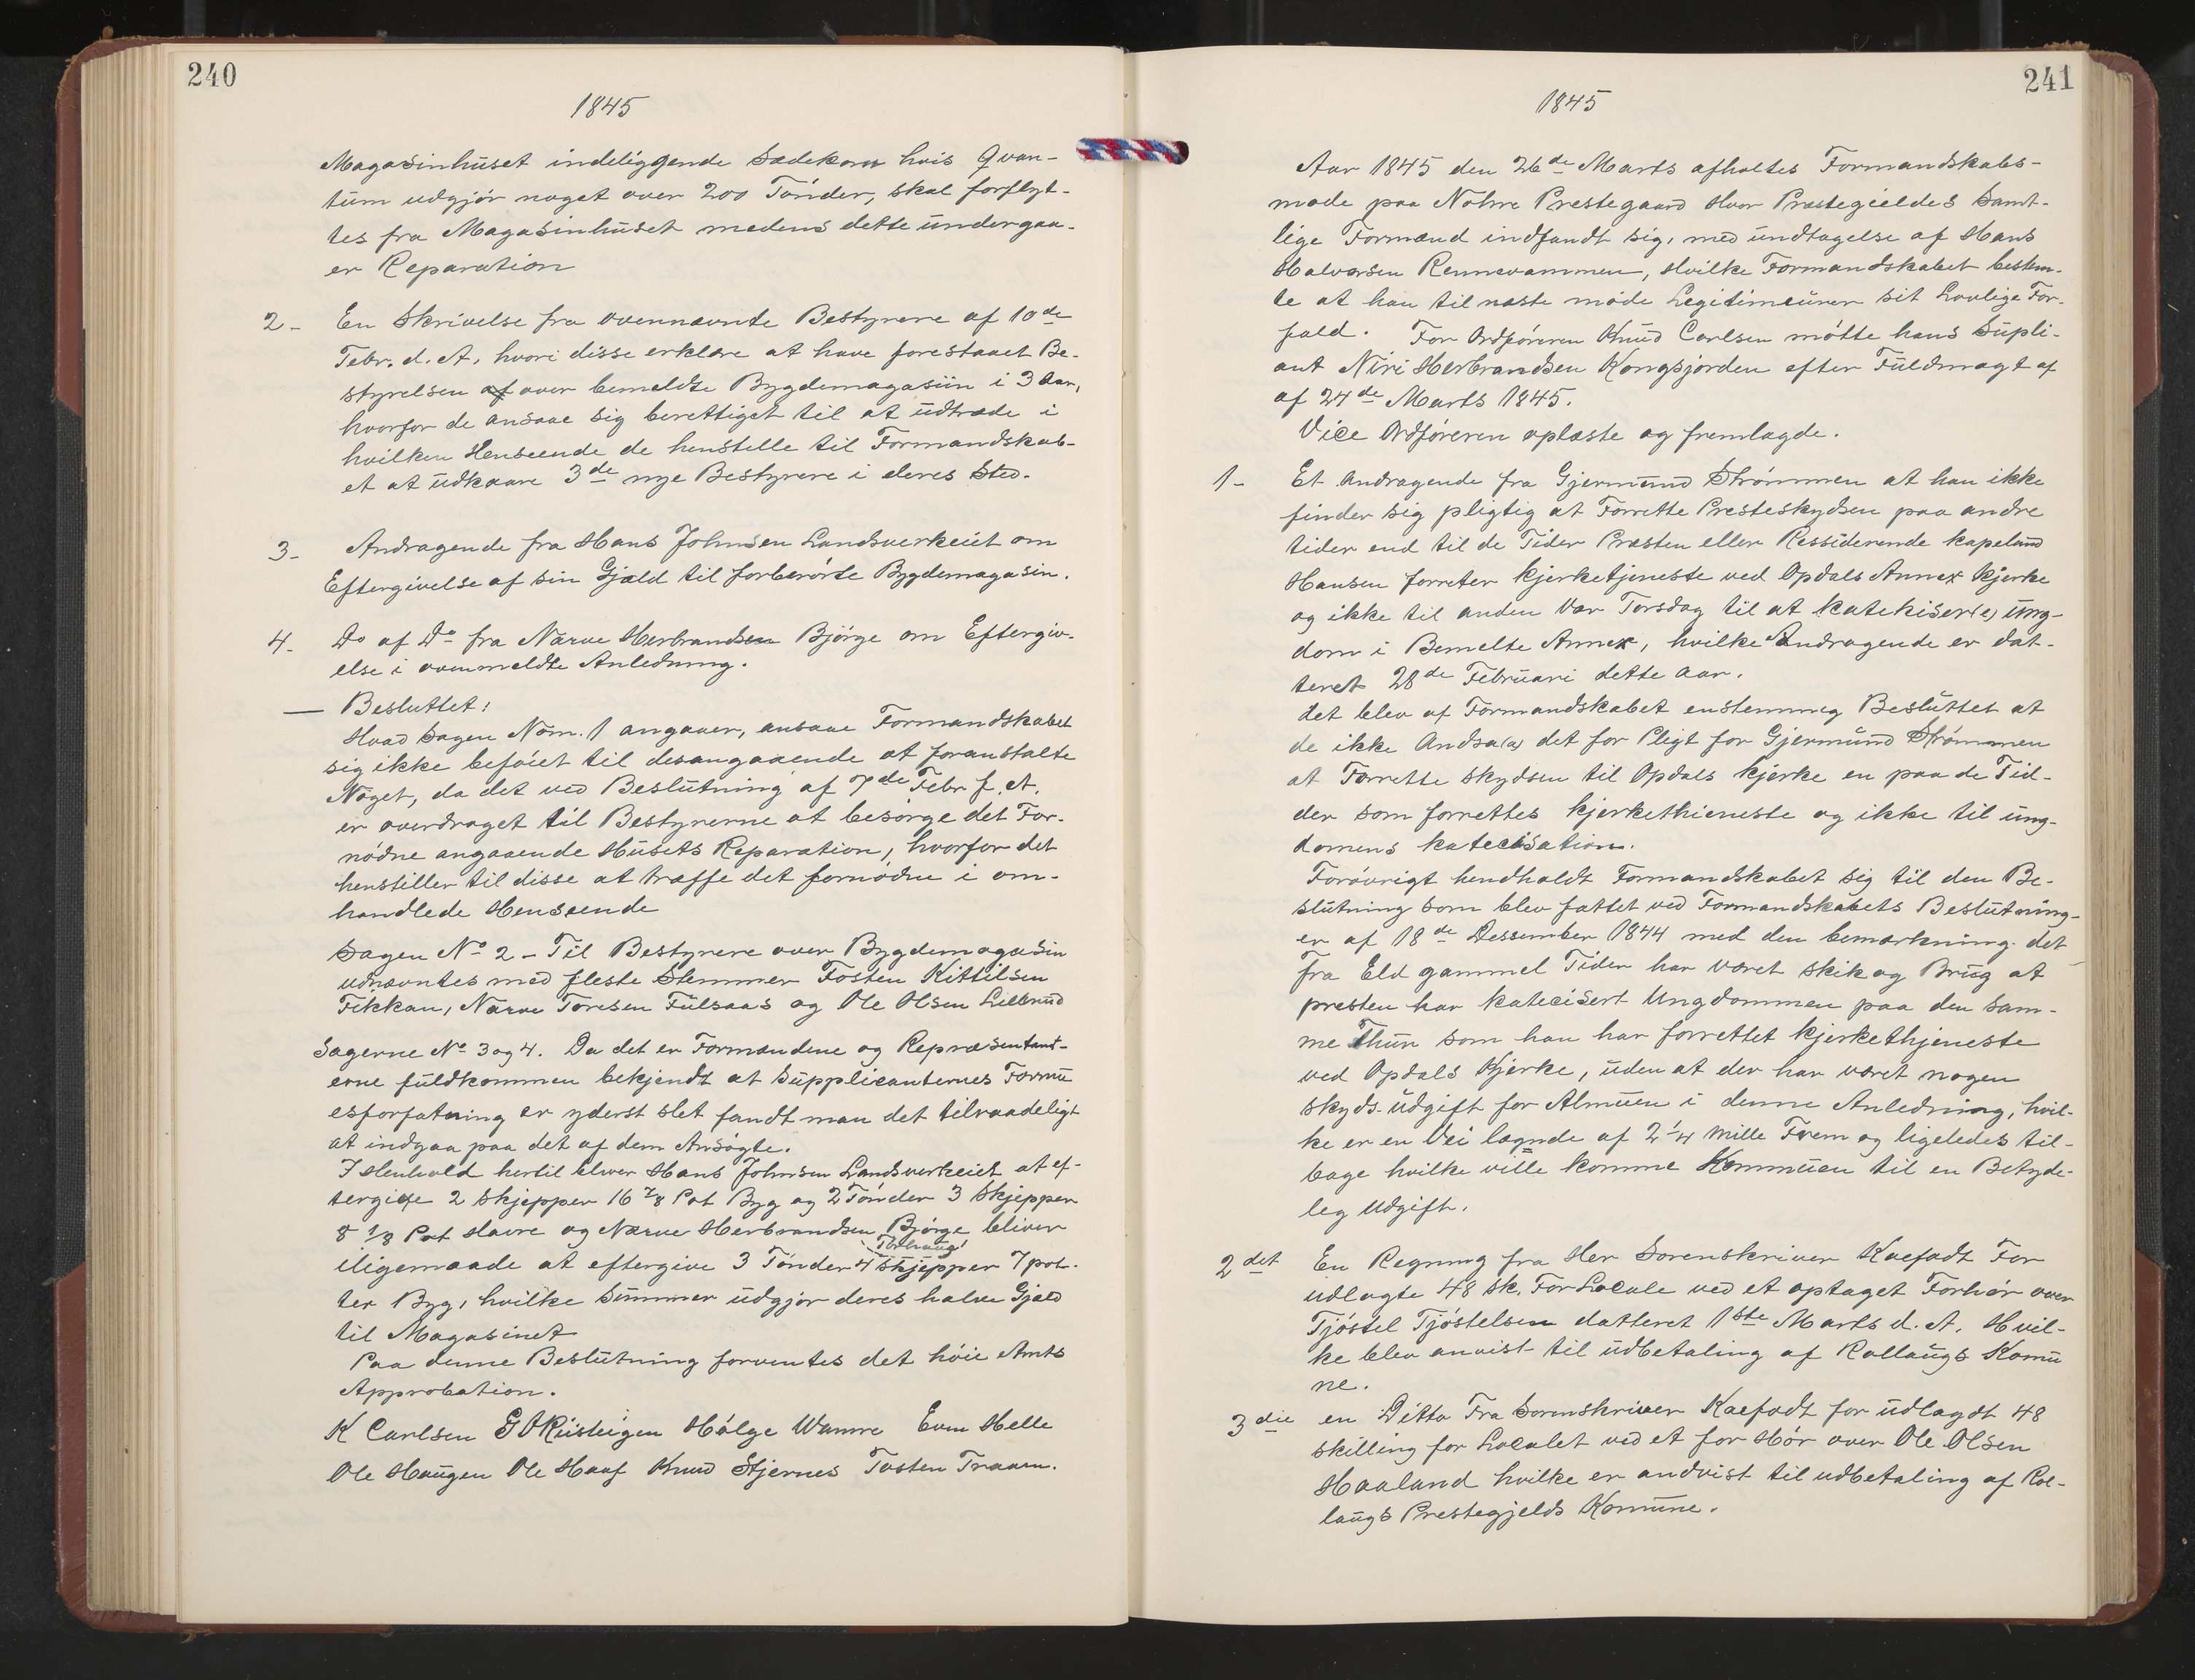 240
1845
Magasinhuset indeliggende Sædekorn hvis Qvan-
tum udgjør noget over 200 Tønder, skal forflyt-
tes fra Magasinhuset medens dette undergaa-
er Reparation
2- En Skrivelse fra ovennævnte Bestyrere af 10de
Febr. d. A, hvori disse erklære at have forestaaet Be-
styrelsen af over bemeldte Bygdemagasiin i 3 Aar,
hvorfor de ansaae sig berettiget til at udtræde i
hvilken Henseende de henstelle til Formandskab-
et at udkaare 3de nye Bestyrere i deres Sted.
3- Andragende fra Hans Johnsen Landsverkeiet om
Eftergivelse af sin Gjæld til forberørte Bygdemagasin.
4- Do af Do fra Narve Herbrandsen Bjørge om Eftergiv-
else i ovenmeldte Anledning.
— Besluttet:
Hvad Sagen Nom. 1 angaaer, ansaae Formandskabet
sig ikke beføiet til desangaaende at foranstalte
Noget, da det ved Beslutning af 7de Febr f. A.
er overdraget til Bestyrerne at besørge det For-
nødne angaaende Husets Reparation, hvorfor det
henstiller til disse at træffe det fornødne i om-
handlede Henseende
Sagen No 2 - Til Bestyrere over Bygdemagasin
udnævntes med fleste Stemmer Tosten Kittilsen
Fikkan, Narve Toresen Fulsaas og Ole Olsen Lillerud
Sagerne No 3 og 4. Da det er Formændene og Repræsentant-
erne fuldkommen bekjendt at Supplicanternes Formu
esforfatning er yderst slet fandt man det tilraadeligt
at indgaa paa det af dem Ansøgte.
I Henhold hertil bliver Hans Johnsen Landsverkeiet at ef-
tergive 2 Skjepper 16 7/8 Pot Byg og 2 Tønder 3 Skjepper
8 1/8 Pot Havre og Narve Herbrandsen Bjørge bliver
iligemaade at eftergive 3 Tønder 4 Skjepper 7 pot-
ter Byg, hvilke Summer udgjør deres halve Gjæld
til Magasinet
Paa denne Beslutning forventes det høie Amts
Approbation.
K Carlsen G O Ruisteigen Hølge Wamre Even Helle
Ole Haugen Ole Haaf Knud Stjernes Tosten Traaen.
241
1845
Aar 1845 den 26de Marts afholtes Formandskabs-
møde paa Nohre Prestegaard Hvor Præstegieldes Samt-
lige Formænd indfandt sig, med undtagelse af Hans
Halvorsen Rennevammen, Hvilke Formandskabet bestem-
te at han til næste møde Legitimeurer sit Lovlige For-
fald. For Ordføreren Knud Carlsen møtte hans Supli-
ant Niri Herbrandsen Kongsjorden efter Fuldmagt af
af 24de Marts 1845.
Vice Ordføreren oplæste og fremlagde.
1- Et Andragende fra Gjermund Strømmen at han ikke
finder sig pligtig at Forrette Presteskydsen paa andre
tider end til de Tider Præsten eller Ressiderende kapeland
Hansen forreter kjerketjeneste ved Opdals Annex Kjerke
og ikke til anden Vær Torsdag til at katekiser(e) ung-
dom i Bemelte Annex, hvilke Andragende er dat-
teret 28de Februari dette aar.
det blev af Formandskabet enstemmig Besluttet at
de ikke Andsa(a) det for Pligt for Gjermund Strømmen
at Forrette skydsen til Opdals kjerke en paa de Tid-
der som forrettes kjerkethieneste og ikke til ung-
domens katecisation.
Forøvrigt hendholdt Formandskabet sig til den Be-
slutning som blev fattet ved Formandskabets Beslutning-
er af 18de Dessember 1844 med den bemærkning det
fra Eld gammel Tider har været skik og Brug at
presten har katecisert Ungdommen paa den sam-
me Thur som han har forrettet kjerkethjeneste
ved Opdals Kjerke, uden at der har været nogen
skyds-udgift for Almuen i denne Anledning, hvil-
ke er en Vei længde af 2 1/4 Mille Frem og ligeledes til-
bage hvilke ville komme Kommuen til en Betyde-
leg Udgift.
2det En Regning fra Her Sorenskriver Kaefodt For
udlagte 48 Sk. For Locale ved et optaget Forhør over
Tjøstel Tjøstelsen datteret 1ste Marts d. A. Hvil-
ke blev anvist til udbetaling af Rollaugs Komu
ne.
3die en Ditto Fra Sorenskriver Kaefodt for udlagdt 48
skilling for Localet ved et for Hør over Ole Olsen
Haaland hvilke er andvist til udbetaling af Rol-
laugs Prestegjelds Komune.